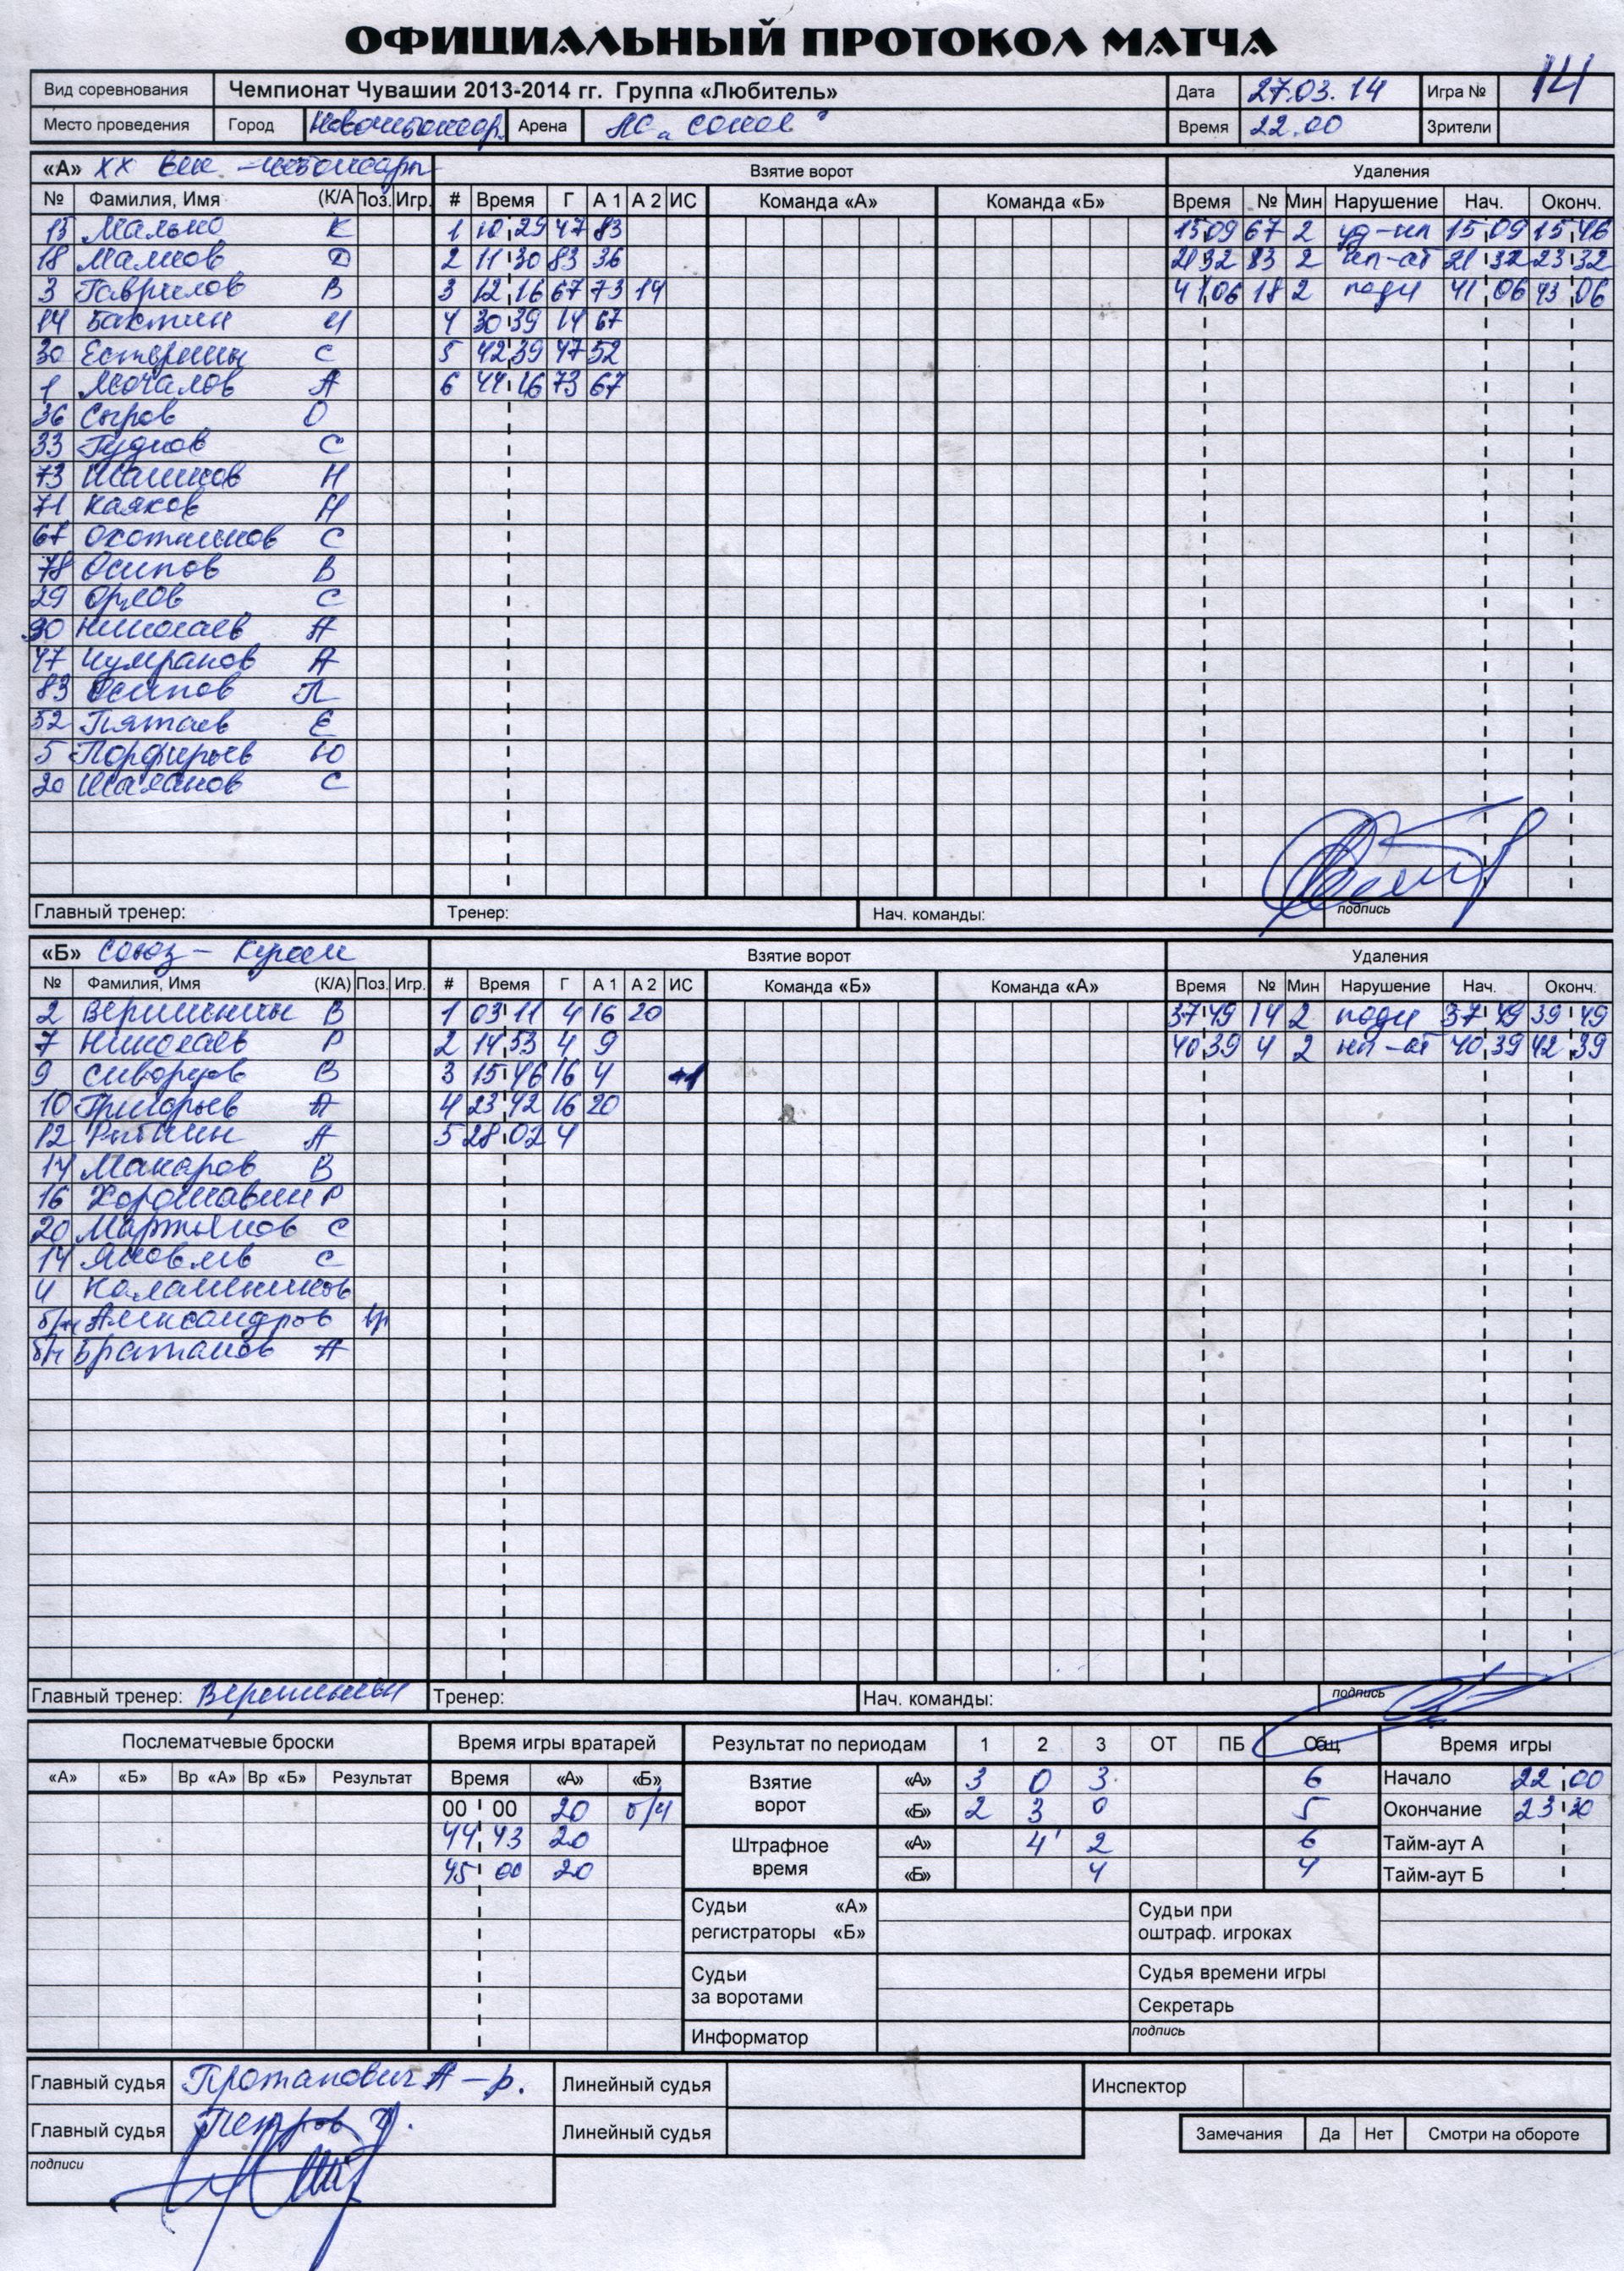 ОФИЦИАЛЬНЫЙ ПРОТОКОЛ МАТЧА
Вид соревнования Чемпионат Чувашии 2013-2014 гг. Группа «Любитель» Дата 27.03.14 Игра № 14
Место проведения Город Арена Время 22.00 Зрители
«А» XX век - Взятие ворот Удаления
№ Фамилия, Имя (К/А Поз. Игр. # Время Г А 1 А 2 ИС Команда «А» Команда «Б» Время № Мин Нарушение Нач. Оконч.
15 К 1 10 29 47 83 15 09 67 2 уд-кл 15 09 15 46
18 Малков Д 2 11 30 83 36 21 32 83 2 21 32 23 32
3 Гаврилов В 3 12 16 67 73 14 41 06 18 2 подн 41 06 43 06
14 Бактин И 4 30 39 14 67
30 С 5 42 39 47 52
1 Мочалов А 6 44 16 73 67
36 Сыров О
33 С
73 Н
71 Каяков Н
67 Охотников С
78 Осипов В
29 Орлов С
90 Николаев А
47 Чумранов А
83 Осипов П
52 Пятаев Е
5 Порфирьев Ю
20 Шаланов С
Главный тренер: Тренер: Нач. команды: подпись
«Б» Союз - Взятие ворот Удаления
№ Фамилия, Имя (К/А) Поз. Игр. # Время Г А 1 А 2 ИС Команда «Б» Команда «А» Время № Мин Нарушение Нач. Оконч.
2 Вершинин В 1 03 11 4 16 20 37 49 14 2 подн 37 49 39 49
7 Николаев Р 2 14 53 4 9 40 39 4 2 40 39 42 39
9 Скворцов В 3 15 46 16 4
10 Григорьев А 4 23 42 16 20
12 Рыбкин А 5 28 02 4
14 Макаров В
16 Хорошавин Р
20 Мартьянов С
14 Яковлев С
4 Калашников
б/н Александров вр
б/н Братанов А
Главный тренер: Вершинин Тренер: Нач. команды: подпись
Послематчевые броски Время игры вратарей Результат по периодам 1 2 3 ОТ ПБ Общ Время игры
«А» «Б» Вр «А» Вр «Б» Результат Время «А» «Б» Взятие ворот «А» 3 0 3 6 Начало 22 00
00 00 20 б/н «Б» 2 3 0 5 Окончание 23 30
44 43 20 Штрафное время «А» 4 2 6 Тайм-аут А
45 00 20 «Б» 4 4 Тайм-аут Б
Судьи регистраторы «А» «Б» Судьи при оштраф. игроках
Судьи за воротами Судья времени игры
Секретарь
Информатор подпись
Главный судья Протанович А-р. Линейный судья Инспектор
Главный судья Петров Линейный судья Замечания Да Нет Смотри на обороте
подписи